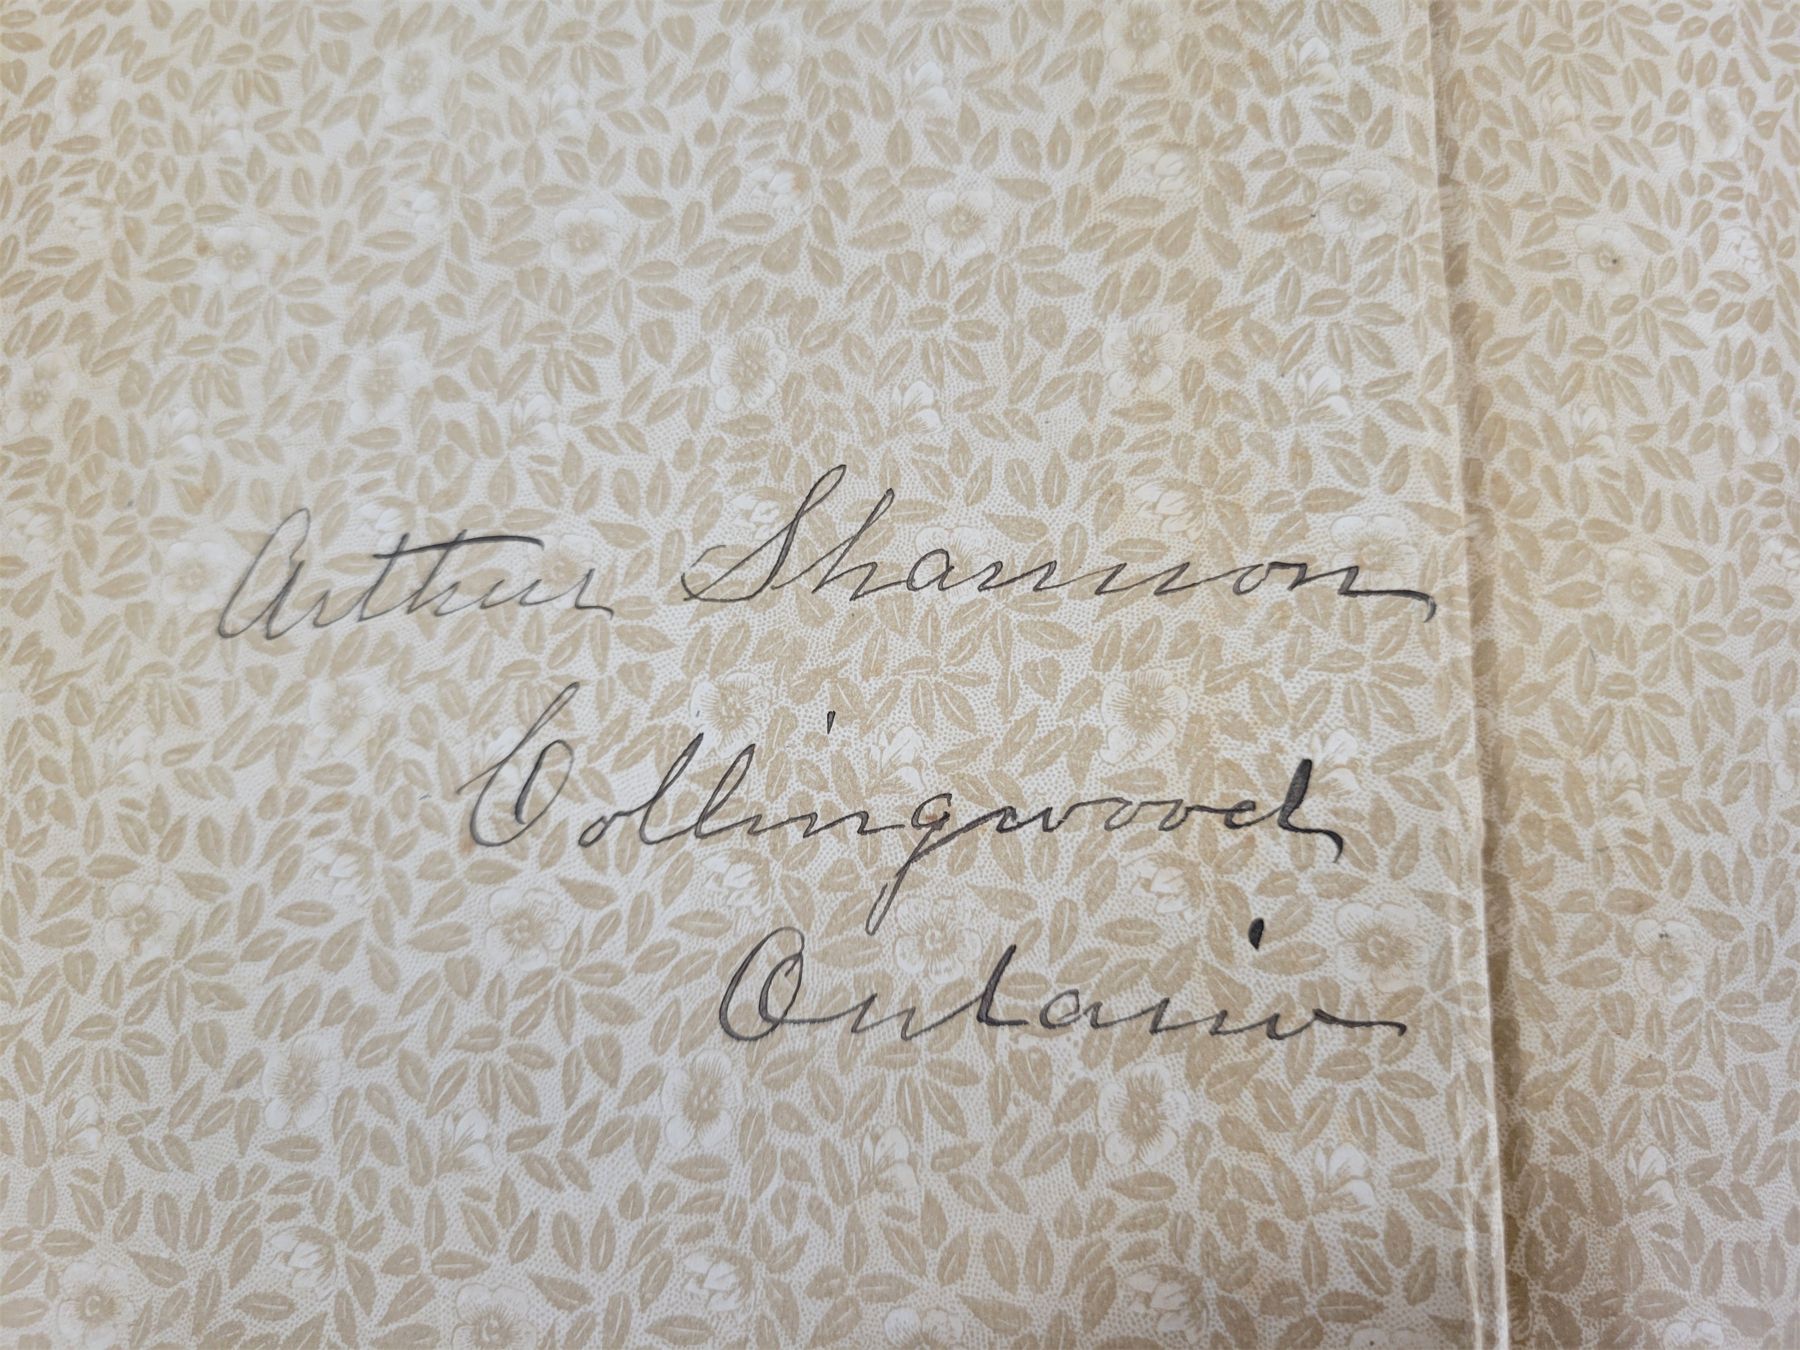 Arthur Shannon
Collingwood
Ontario